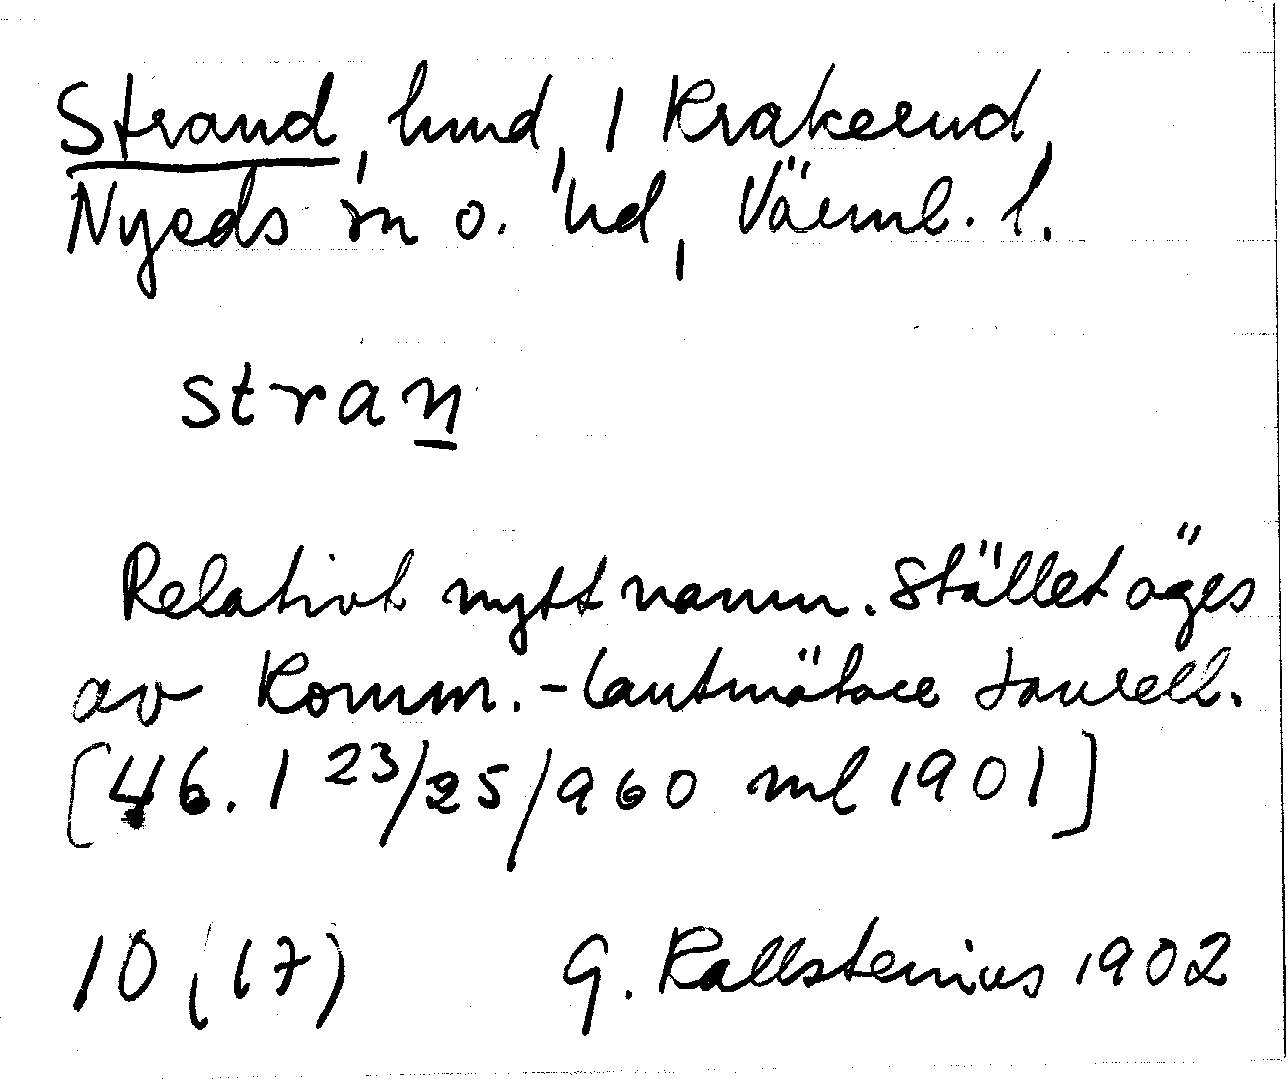 Strand, hmd, 1 Krakerud,
Nyeds sn o. hd, Värml. l.
stran
Relativt nytt namn. Stället äges
av Komm.-lantmätare Taurell.
[46. 1 23/25/960 ml 1901]
10 (17) G. Kallstenius 1902